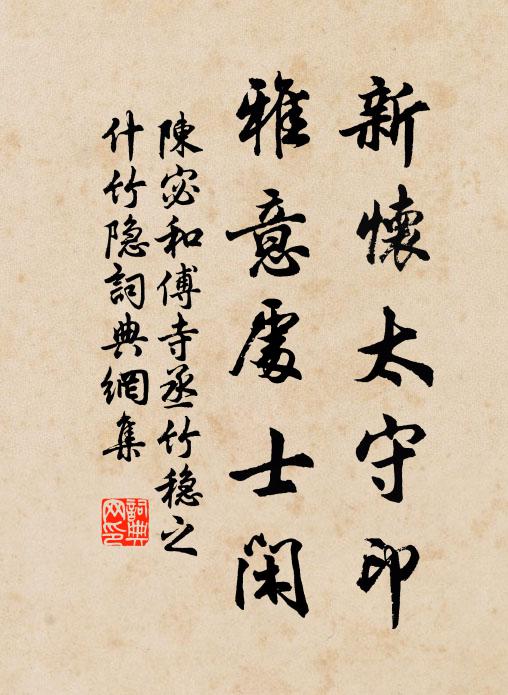 新懷太守印
雅意處士閑
陳宓和傅寺丞竹穏之
什竹隐詞典網集
詞典网印